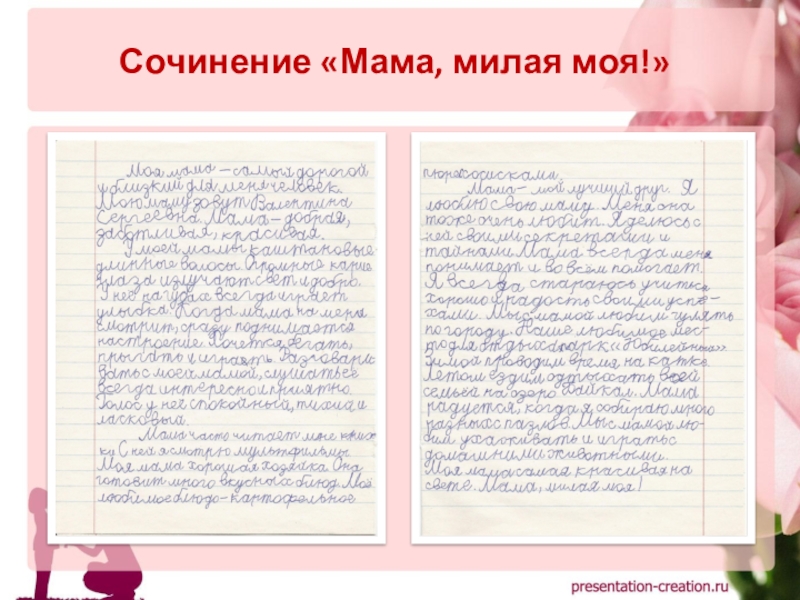 Сочинение «Мама, милая моя!»
Моя мама – самый дорогой
и близкий для меня человек.
Мою маму зовут Валентина
Сергеевна. Мама – добрая,
заботливая, красивая.
У моей мамы каштановые
длинные волосы. Огромные карие
глаза излучают свет и добро.
У неё на губах всегда играет
улыбка. Когда мама на меня
смотрит, сразу поднимается
настроение. Хочется бегать,
прыгать и играть. Разговари
вать с моей мамой, слушать её
всегда интересно и приятно.
Голос у неё спокойный, тихий и
ласковый.
Мама часто читает мне книж
ки. С ней я смотрю мультфильмы.
Моя мама хорошая хозяйка. Она
готовит много вкусных блюд. Моё
любимое блюдо – картофельное
пюре с сосисками.
Мама – мой лучший друг. Я
люблю свою маму. Меня она
тоже очень любит. Я делюсь с
ней своими секретами и
тайнами. Мама всегда меня
понимает и во всём помогает.
Я всегда стараюсь учится
хорошо и радость своими успе-
хами. Мы с мамой любим гулять
по городу. Наше любимое мес-
то для отдыха парк «Юбилейный».
Зимой проводим время на катке.
Летом ездим отдыхать всей
семьёй на озеро Байкал. Мама
радуется, когда я собираю много
разных пазлов. Мы с мамой лю-
бим ухаживать и играть с
домашними животными.
Моя мама самая красивая на
свете. Мама, милая моя!
presentation-creation.ru